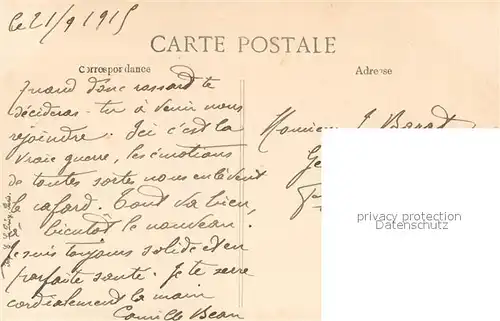 le 21/9 1915
CARTE POSTALE
Correspondance
Adresse
Quand donc te
décideras-tu à venir nous
rejoindre. Ici c'est la
vraie guerre, les émotions
de toutes sortes nous enlèvent
le cafard. Tout va bien,
bientôt le nouveau.
Je suis toujours solide et en
parfaite santé. Je te serre
cordialement la main
Camille Bean
Monsieur J. Barat
privacy protection
www.oldthing.com